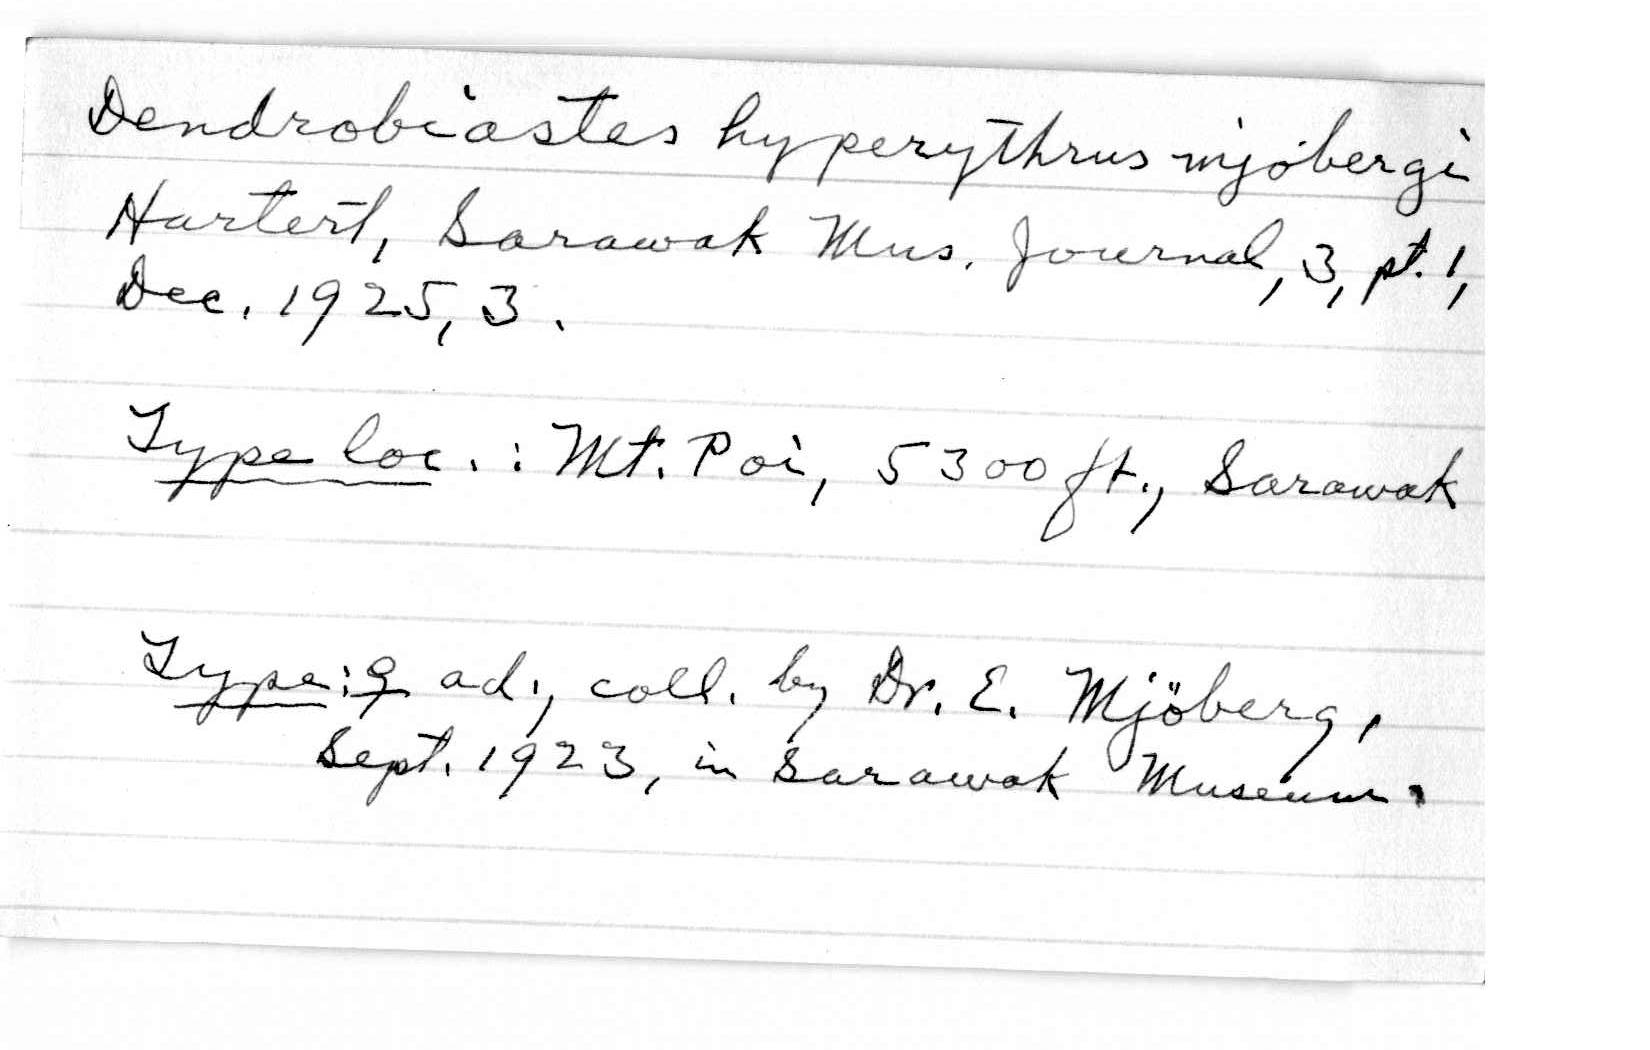 Dendrobiastes hyperythrus mjobergi
Hartert, Sarawak Mus. Journal, 3, pt. 1,
Dec. 1925, 3.
Type loc.: Mt. Poi, 5300 ft., Sarawak
Type: ♀ ad., coll. by Dr. E. Mjöberg,
Sept. 1923, in Sarawak Museum.